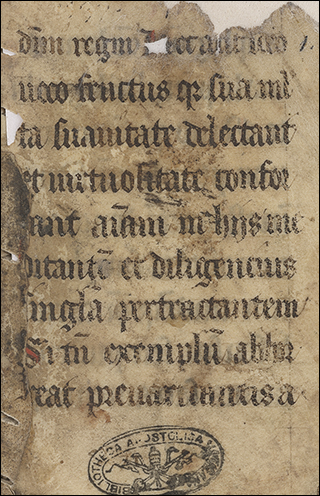 dim regni
uero fructus qr sua ml
ta suauitate delectant
et uirtuositate confor
tant aiam in hijs me
ditante et diligencius
singla pertractantem
Si tn exemplu abhor
reat preuaricantis a
BIBLIOTHECA APOSTOLICA